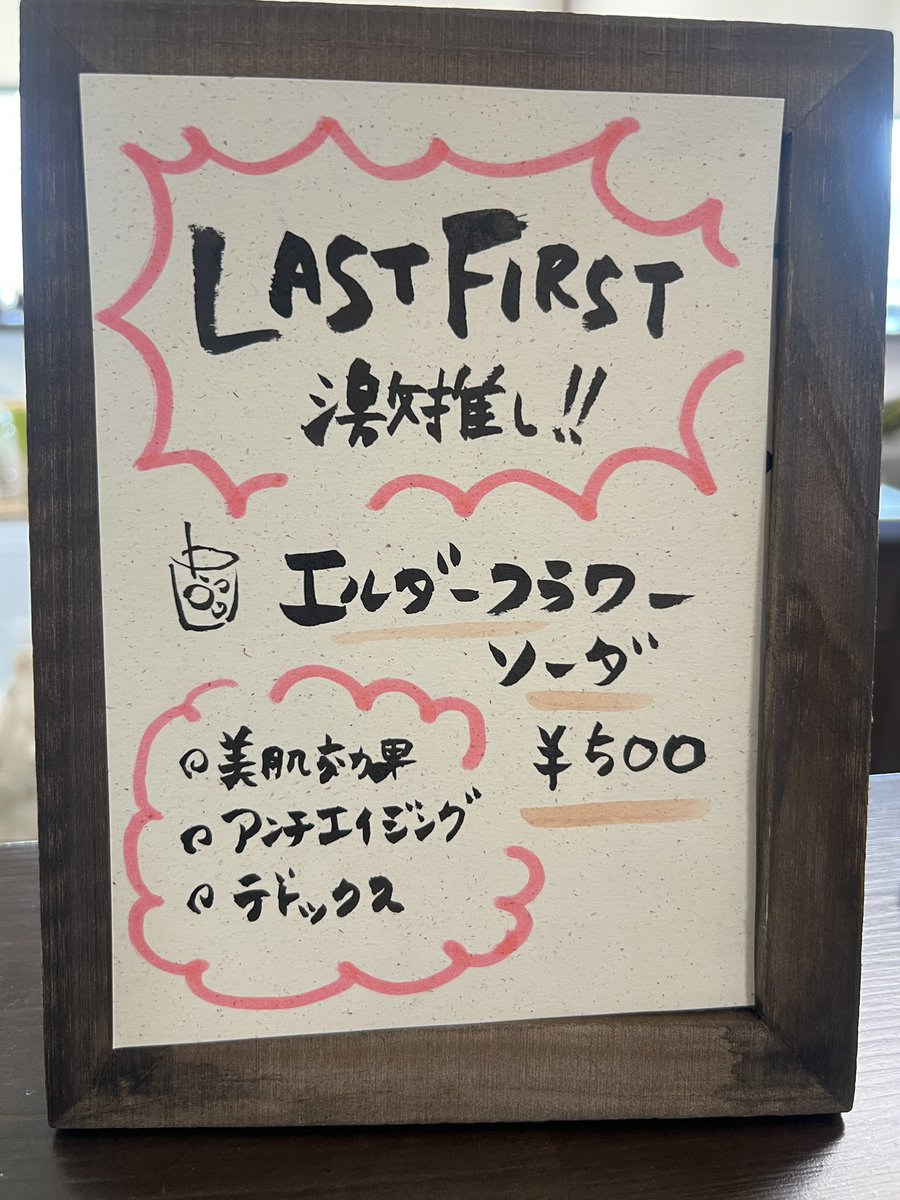 LAST FIRST
激推し!!
エルダーフラワー
ソーダ
¥500
美肌効果
アンチエイジング
デトックス